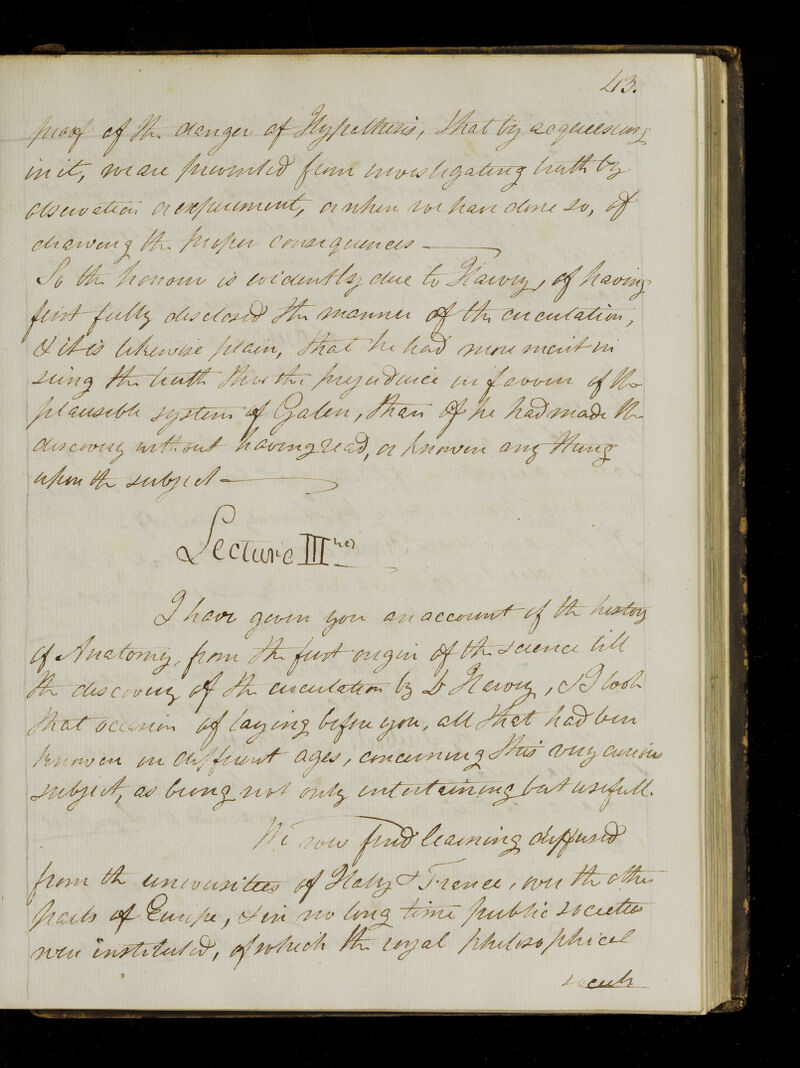 43.
proof of the danger of Hypothesis, that by acqueesing
in it, we are prevented from investigating truth by
observation or experiment, or when we have done so, of
drawing the proper consequences —
So the honour is evidently due to Harvey, of having
first fully disclosed the manner of the circulation,
& it is likewise plain, that he had more merit in
seing the truth thro the prejudice in favour of the
plausible system of Galen, than if he had made the
discovery without having read, or known any thing
upon the subject —
Lecture III
I have given you an account of the history
of Anatomy, from the first origin of the science till
the discovery of the circulation by Dr Harvey, & I took
that occasion of laying before you, all that had been
known in different ages, concerning this very curious
subject, as being not only entertaining but usefull.
We now find learning diffused
from the universitees of Italy & France, over the other
parts of Europe, & in no long time public societies
were instituted, of which the royal philosophical